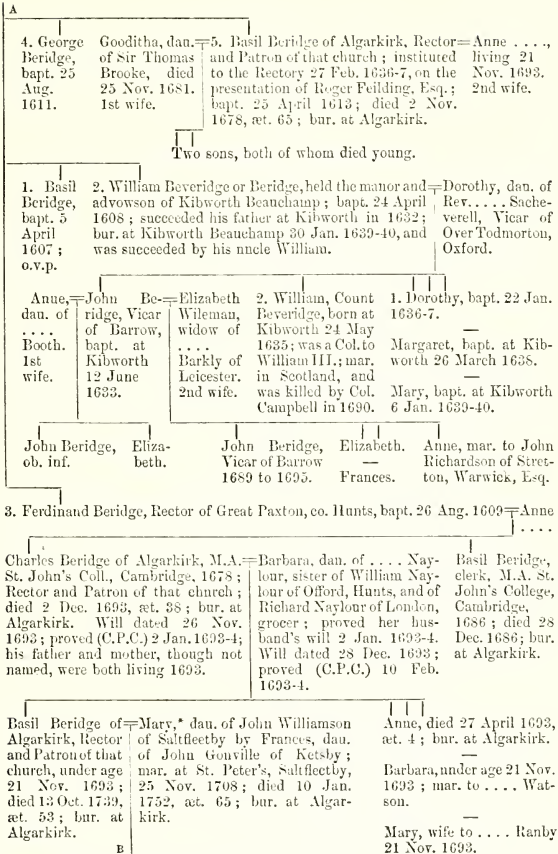 A
4. George
Beridge,
bapt. 25
Aug.
1611.
Gooditha, dau.
of Sir Thomas
Brooke, died
25 Nov. 1681.
1st wife.
5. Basil Beridge of Algarkirk, Rector
and Patron of that church; instituted
to the Rectory 27 Feb. 1636-7, on the
presentation of Roger Feilding, Esq.;
bapt. 25 April 1613; died 2 Nov.
1678, æt. 65; bur. at Algarkirk.
Anne . . . .,
living 21
Nov. 1693.
2nd wife.
Two sons, both of whom died young.
1. Basil
Beridge,
bapt. 5
April
1607;
o.v.p.
2. William Beveridge or Beridge, held the manor and
advowson of Kibworth Beauchamp; bapt. 24 April
1608; succeeded his father at Kibworth in 1632;
bur. at Kibworth Beauchamp 30 Jan. 1639-40, and
was succeeded by his uncle William.
Dorothy, dau. of
Rev. . . . . Sache-
verell, Vicar of
Over Todmorton,
Oxford.
Anue,
dau. of
. . . .
Booth.
1st
wife.
John Be-
ridge, Vicar
of Barrow,
bapt. at
Kibworth
12 June
1633.
Elizabeth
Wileman,
widow of
. . . .
Barkly of
Leicester.
2nd wife.
2. William, Count
Beveridge, born at
Kibworth 24 May
1635; was a Col. to
William III.; mar.
in Scotland, and
was killed by Col.
Campbell in 1690.
1. Dorothy, bapt. 22 Jan.
1636-7.
—
Margaret, bapt. at Kib-
worth 26 March 1638.
—
Mary, bapt. at Kibworth
6 Jan. 1639-40.
John Beridge,
ob. inf.
Eliza-
beth.
John Beridge,
Vicar of Barrow
1689 to 1695.
Elizabeth.
—
Frances.
Anne, mar. to John
Richardson of Stret-
ton, Warwick, Esq.
3. Ferdinand Beridge, Rector of Great Paxton, co. Hunts, bapt. 26 Aug. 1609
Anne
. . . .
Charles Beridge of Algarkirk, M.A.
St. John's Coll., Cambridge, 1678;
Rector and Patron of that church;
died 2 Dec. 1693, æt. 38; bur. at
Algarkirk. Will dated 26 Nov.
1693; proved (C.P.C.) 2 Jan. 1693-4;
his father and mother, though not
named, were both living 1693.
Barbara, dau. of . . . . Nay-
lour, sister of William Nay-
lour of Offord, Hunts, and of
Richard Naylour of London,
grocer; proved her hus-
band's will 2 Jan. 1693-4.
Will dated 28 Dec. 1693;
proved (C.P.C.) 10 Feb.
1693-4.
Basil Beridge,
clerk, M.A. St.
John's College,
Cambridge,
1686; died 28
Dec. 1686; bur.
at Algarkirk.
Basil Beridge of
Algarkirk, Rector
and Patron of that
church, under age
21 Nov. 1693;
died 13 Oct. 1739,
æt. 53; bur. at
Algarkirk.
Mary,* dau. of John Williamson
of Saltfleetby by Frances, dau.
of John Gouville of Ketsby;
mar. at St. Peter's, Saltfleetby,
25 Nov. 1708; died 10 Jan.
1752, æt. 65; bur. at Algar-
kirk.
Anne, died 27 April 1693,
æt. 4; bur. at Algarkirk.
—
Barbara, under age 21 Nov.
1693; mar. to . . . . Wat-
son.
—
Mary, wife to . . . . Ranby
21 Nov. 1693.
B